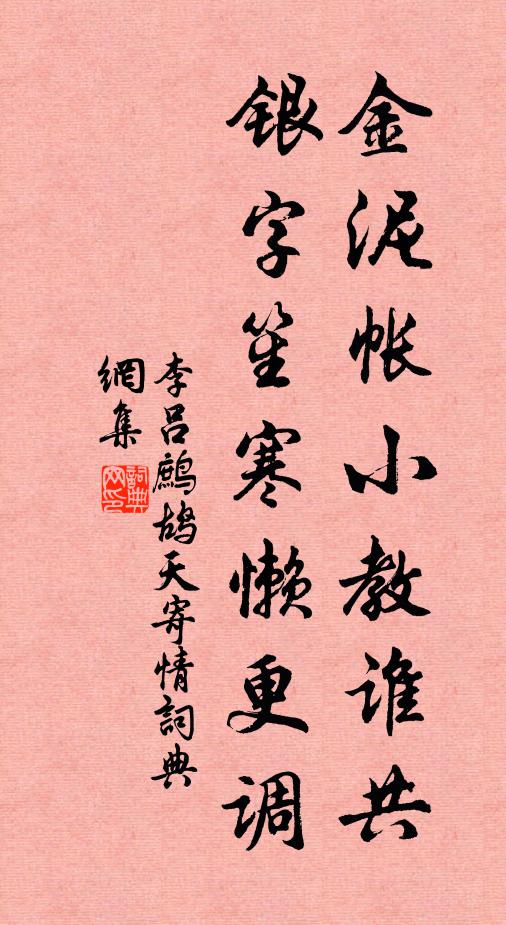 金泥帐小教谁共
银字笙寒懒更调
李吕鹧鸪天寄情詞典
網集
詞典
网印